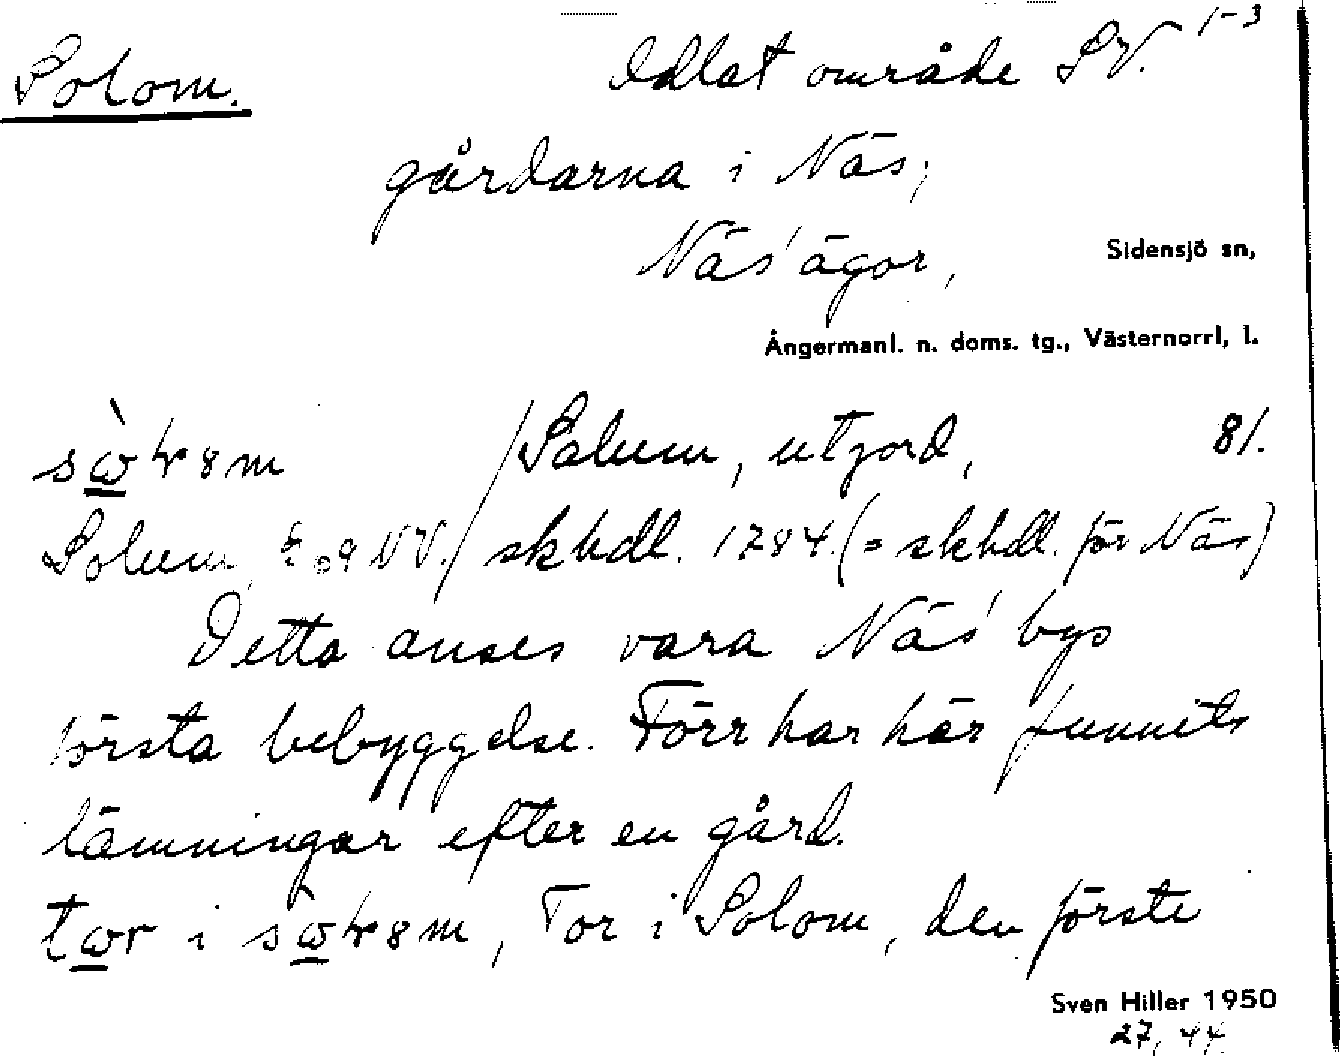 1-3
Solom. Odlat område SV.
gårdarna i Näs,
Näs' ägor, Sidensjö sn,
Ångermanl. n. doms. tg., Västernorrl. l.
/Solum, utjord, 81.
Solum, NV./ skhdl. 1784. (= skhdl. för Näs)
Detta anses vara Näs' bys
första bebyggelse. Förr har här funnits
lämningar efter en gård.
i , Tor i Solom, den förste
Sven Hiller 1950
27, 44